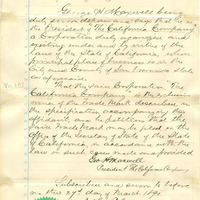 George H. Maxwell being
duly sworn deposes and says that he is
the President of The California Company
a Corporation duly organized and
existing under and by virtue of the
laws of the State of California, whose
principal place of business is in the
City and County of San Francisco State
as aforesaid.
That the said Corporation The
California Company is the
owner of the Trade Mark described in
the specification accompanying this
affidavit, and its Petition that the
said Trade Mark may be filed in the
office of the Secretary of State of the State
of California, in accordance with the
law in such cases made and provided
Geo. H. Maxwell
President The California Company
Subscribed and sworn to before
me this 27th day of March 1891